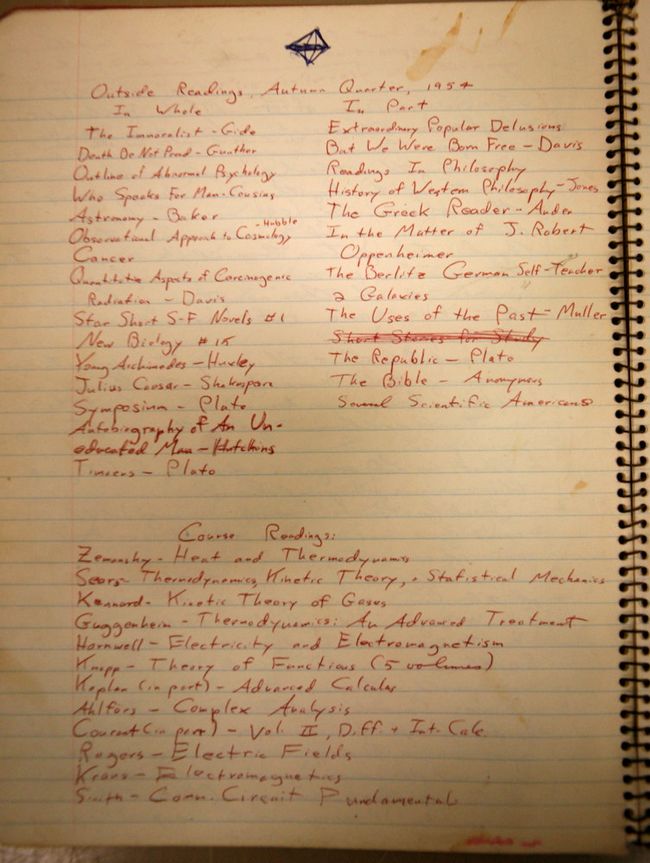 Outside Readings, Autumn Quarter, 1954
In Whole
The Immoralist - Gide
Death Be Not Proud - Gunther
Outline of Abnormal Psychology
Who Speaks For Man - Cousins
Astronomy - Baker
Observational Approach to Cosmology - Hubble
Cancer
Quantitative Aspects of Carcinogenic
Radiation - Davis
Star Short S-F Novels #1
New Biology #
Young Archimedes - Huxley
Julius Caesar - Shakespare
Symposium - Plato
Autobiography of An Un-
educated Man - Hutchins
Timaeus - Plato
In Part
Extraordinary Popular Delusions
But We Were Born Free - Davis
Readings In Philosophy
History of Western Philosophy - Jones
The Greek Reader - Auden
In the Matter of J. Robert
Oppenheimer
The Berlitz German Self-Teacher
2 Galaxies
The Uses of the Past - Muller
Short Stories for Study
The Republic - Plato
The Bible - Anonymous
Several Scientific Americans
Course Readings:
Zemansky - Heat and Thermodynamics
Sears - Thermodynamics, Kinetic Theory, + Statistical Mechanics
Kennard - Kinetic Theory of Gases
Guggenheim - Thermodynamics: An Advanced Treatment
Harnwell - Electricity and Electromagnetism
Knopp - Theory of Functions (5 volumes)
Kaplan (in part) - Advanced Calculus
Ahlfors - Complex Analysis
Courant (in part) - Vol. II, Diff. + Int. Calc.
Rogers - Electric Fields
Kraus - Electromagnetics
Smith - Comm. Circuit Fundamentals